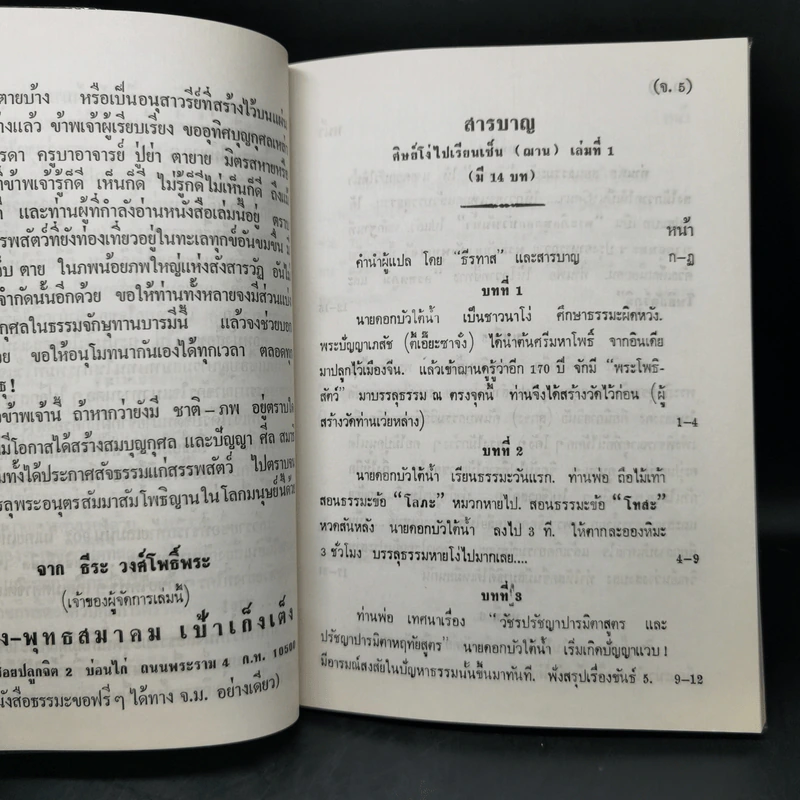 ตายบ้าง หรือเป็นอนุสาวรีย์ที่สร้างไว้บนแผ่น
างแล้ว ข้าพเจ้าผู้เรียบเรียง ขออุทิศบุญกุศลเหล่า
รดา ครูบาอาจารย์ ปู่ย่า ตายาย มิตรสหายหรือ
ข้าพเจ้ารู้ก็ดี เห็นก็ดี ไม่รู้ก็ดีไม่เห็นก็ดี ถึงแม้
ดี และท่านผู้ที่กำลังอ่านหนังสือเล่มนี้อยู่ ตราบ
รพสัตว์ที่ยังท่องเที่ยวอยู่ในทะเลทุกข์อันขมขื่น มี
จ็บ ตาย ในภพน้อยภพใหญ่แห่งสังสารวัฏ อันไม่
จำกัดนั้นอีกด้วย ขอให้ท่านทั้งหลายจงมีส่วนแบ่ง
กุศลในธรรมจักษุทานบารมีนี้ แล้วจงช่วยบอก
วย ขอให้อนุโมทนากันเองได้ทุกเวลา ตลอดทุก
ธุ!
ข้าพเจ้านี้ ถ้าหากว่ายังมี ชาติ–ภพ อยู่ตราบใด
มีโอกาสได้สร้างสมบุญกุศล และปัญญา ศีล สมาธิ
มทั้งได้ประกาศสัจธรรมแก่สรรพสัตว์ ไปตราบ
รลุพระอนุตรสัมมาสัมโพธิญานในโลกมนุษย์นี้ด้วย
จาก ธีระ วงศ์โพธิ์พระ
(เจ้าของผู้จัดการเล่มนี้)
ง–พุทธสมาคม เป้าเก็งเต็ง
ซอยปลูกจิต 2 บ่อนไก่ ถนนพระราม 4 ก.ท. 10500
นังสือธรรมะขอฟรีๆ ได้ทาง จ.ม. อย่างเดียว)
(จ. 5)
สารบาญ
ศิษย์โง่ไปเรียนเซ็น (ฌาน) เล่มที่ 1
(มี 14 บท)
หน้า
คำนำผู้แปล โดย “ธีรทาส” และสารบาญ ก-ฎ
บทที่ 1
นายดอกบัวใต้น้ำ เป็นชาวนาโง่ ศึกษาธรรมะผิดหวัง.
พระปัญญาเภสัช (ตี้เอี๊ยะซาจั๋ง) ได้นำต้นศรีมหาโพธิ์ จากอินเดีย
มาปลูกไว้เมืองจีน. แล้วเข้าฌานดูรู้ว่าอีก 170 ปี จักมี “พระโพธิ-
สัตว์” มาบรรลุธรรม ณ ตรงจุดนี้ ท่านจึงได้สร้างวัดไว้ก่อน (ผู้
สร้างวัดท่านเว่ยหล่าง) 1-4
บทที่ 2
นายดอกบัวใต้น้ำ เรียนธรรมะวันแรก. ท่านพ่อ ถือไม้เท้า
สอนธรรมะข้อ “โลภะ” หมวกหายไป. สอนธรรมะข้อ “โทสะ”
หวดสันหลัง นายดอกบัวใต้น้ำ ลงไป 3 ที. ให้ตากละอองหิมะ
3 ชั่วโมง บรรลุธรรมหายโง่ไปมากเลย.... 4-9
บทที่ 3
ท่านพ่อ เทศนาเรื่อง “วัชรปรัชญาปารมิตาสูตร และ
ปรัชญาปารมิตาหฤทัยสูตร” นายดอกบัวใต้น้ำ เริ่มเกิดปัญญาแวบ!
มีอารมณ์สงสัยในปัญหาธรรมนั้นขึ้นมาทันที. ฟังสรุปเรื่องขันธ์ 5. 9-12